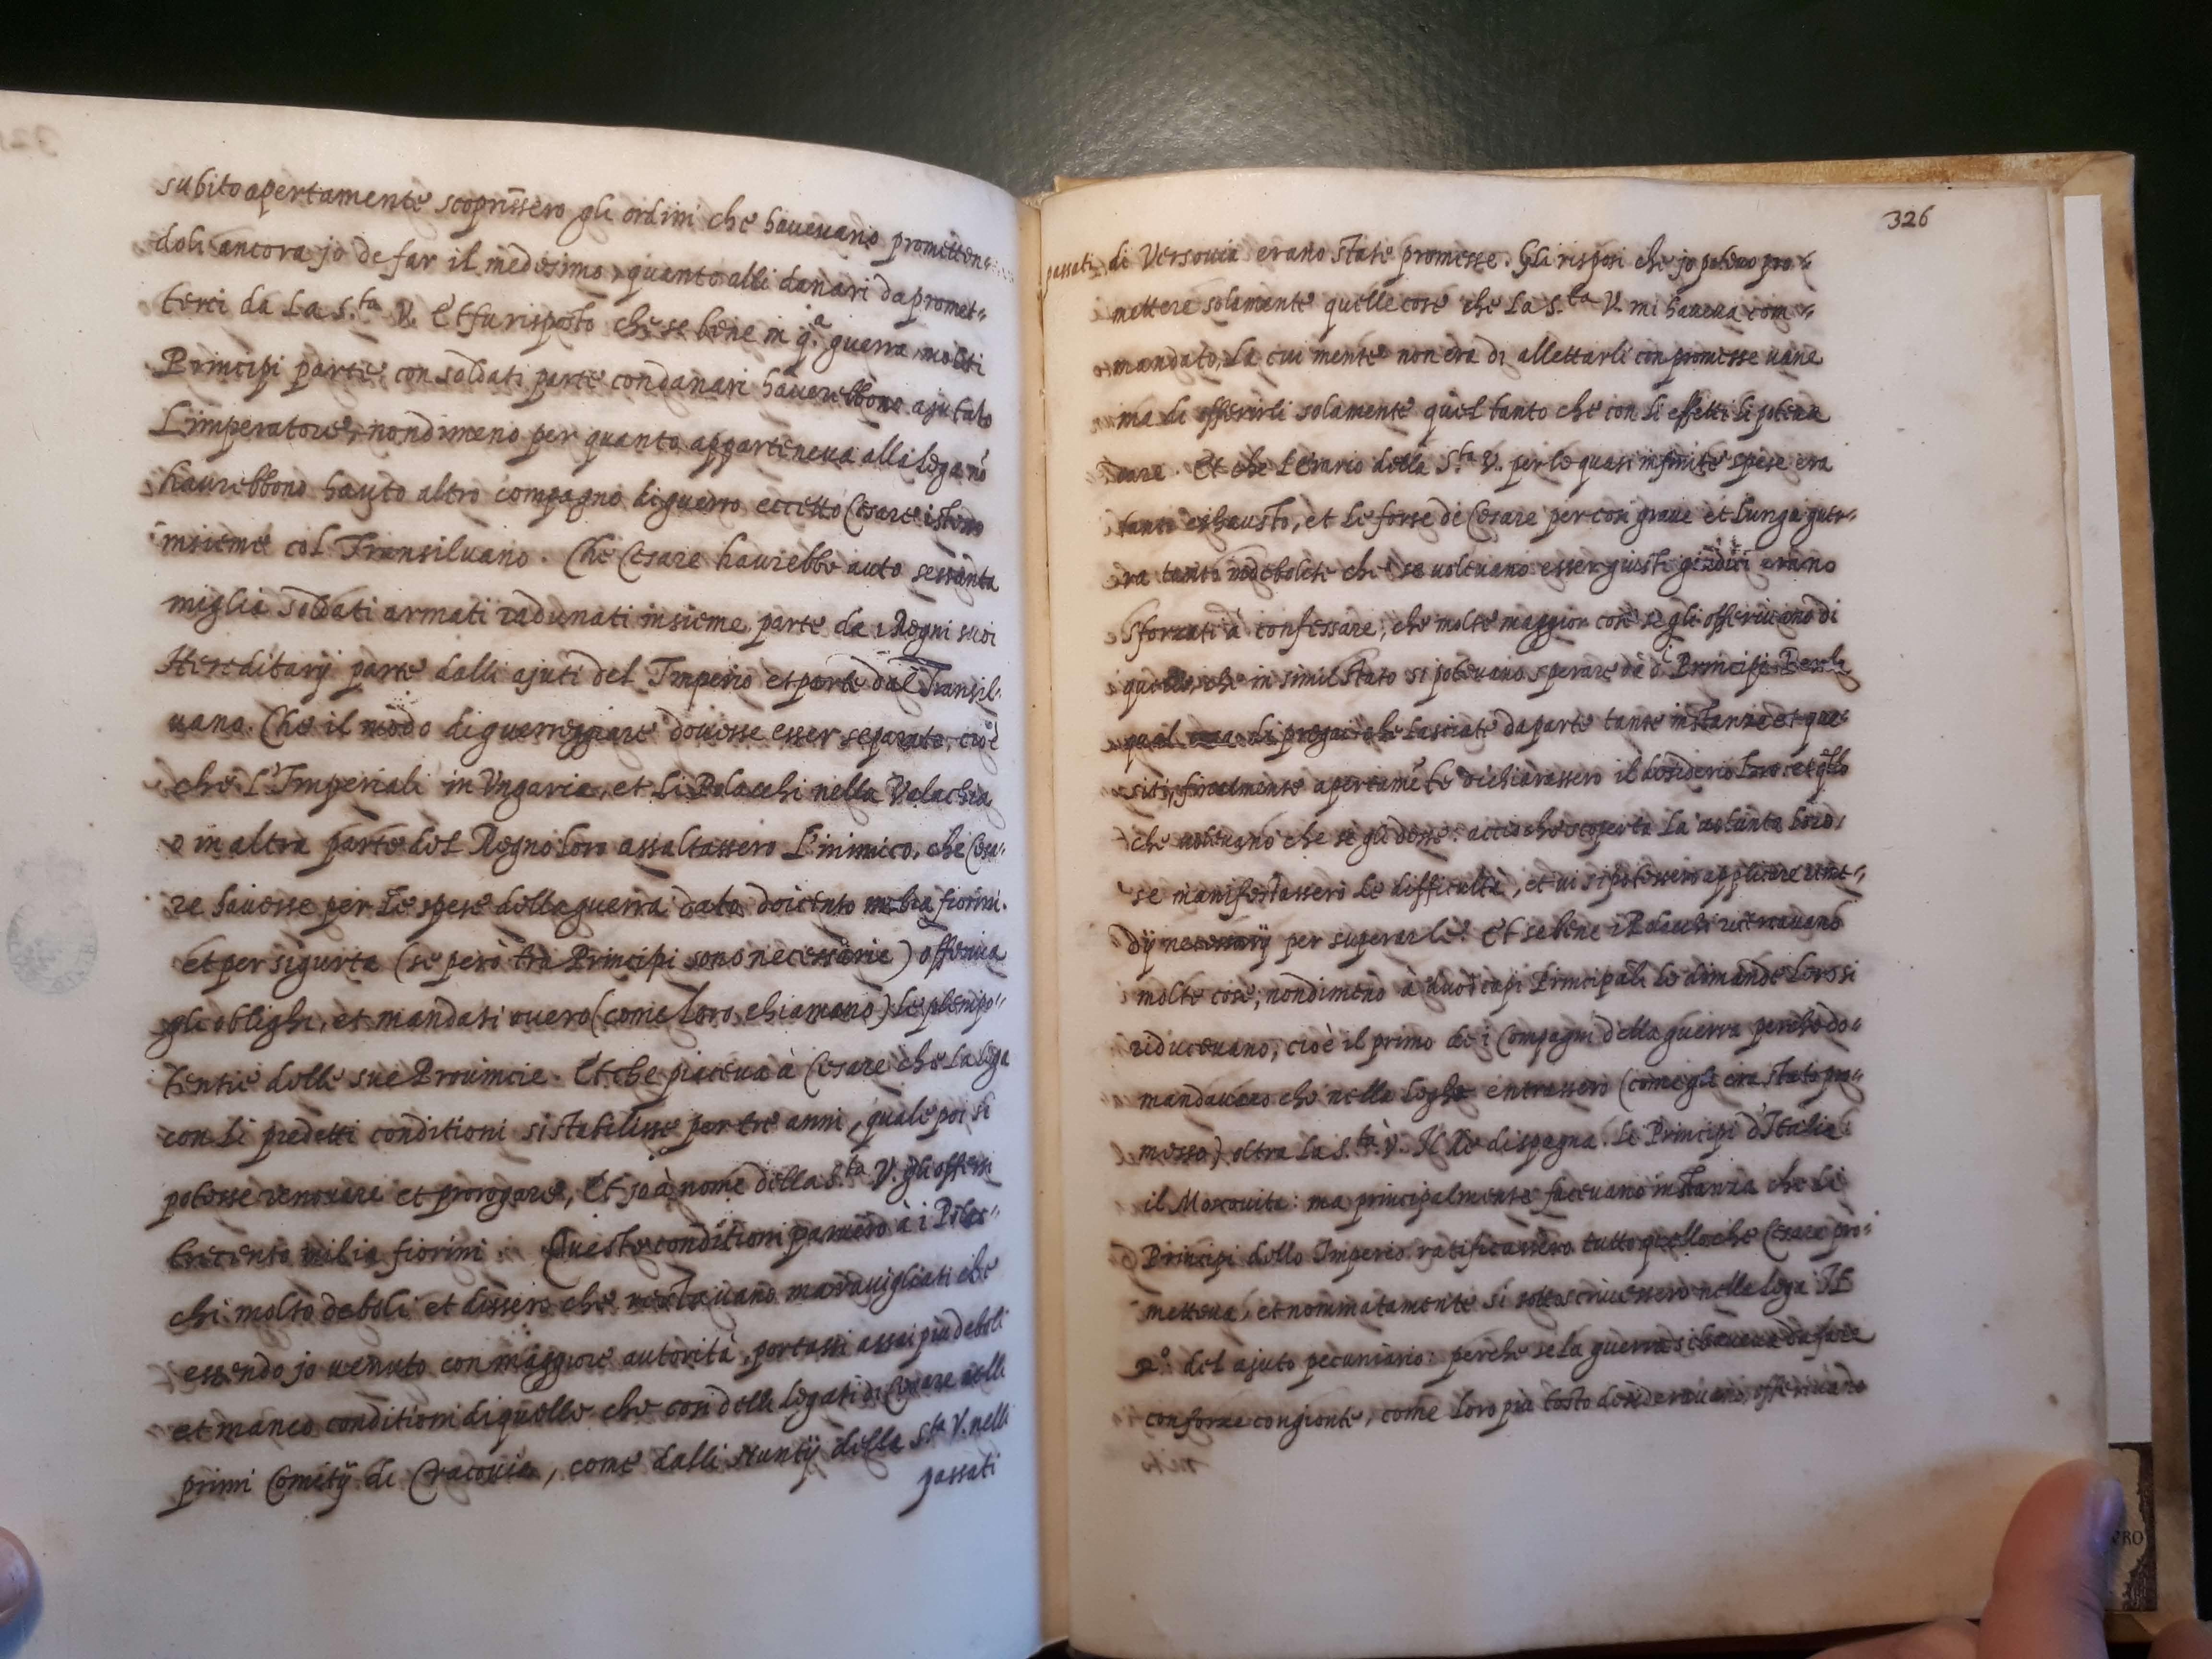 subito apertamente scoprissero gli ordini che havevano prometten-
doli ancora jo de far il medesimo, quanto alli danari da promet-
terci da La S.ta V. Et fu risposto che se bene in q.a guerra molti
Principi parte con soldati parte con danari haverebbono ajutato
L'imperatore, nondimeno per quanto apparteneva alla lega nō
haurebbono hauto altro compagno di guerra eccetto Cesare istesso
insieme col Transilvano. Che Cesare haurebbe auto sessanta
miglia soldati armati radunati insieme parte da i Regni suoi
Hereditarij parte dalli ajuti del Imperio et parte dal Transil-
vano. Che il modo di guerreggiare dovesse esser separato, cioè
che L'Imperiali in Vngaria, et Li Polacchi nella Valachia
o in altra parte del Regno loro assaltassero L'inimico, che Cesa-
re havesse per Le spese della guerra dato doicento milia fiorini.
et per sigurta (se però tra Principi sono necessarie) offeriva
gli oblighi, et mandati overo (come Loro chiamano) Le plenipo-
tentie delle sue Provincie. Et che piaceva à Cesare che La lega
con Li predetti conditioni si stabilisse per tre anni, quale poi si
potesse renovare et prorogare, Et jo à nome della S.ta V. gli offersi
trecento milia fiorini. Queste conditioni parvero à i Polac-
chi molto deboli et dissero che restavano maravigliati che
essendo jo venuto con maggiore autorità, portassi assai piu deboli
et manco conditioni di quelle che cosi delli legati di Cesare nelli
primi Comitij di Cracovia, come dalli Nuntij della S.ta V. nelli
passati
326
passati di Versovia erano state promesse. Gli risposi che jo potevo pro-
mettere solamente quelle cose che La S.ta V. mi haveva com-
mandato, La cui mente non era di allettarli con promesse vane
ma di offerirli solamente quel tanto che con li effetti li poteva
dare. Et che L'erario della S.ta V. per le quasi infinite spese era
tanto exhausto, et Le forse de Cesare per cosi grave et Lunga guer-
ra tanto indebolite che se volevano esser giusti giudici erano
sforzati à confessare, che molte maggior cose se gli offerivano di
quello, che in simil stato si potevano sperare da d.i Principi
Lasciate da parte tante instanze et que-
siti, finalmente apertamēte dichiarassero il desiderio loro, et q̄llo
che volevano che se gli desse: accioche scoperta La voluntà loro,
se manifestassero Le difficultà, et vi si potessero applicare reme-
dij necessarij per superarle. Et se bene i Polacchi ricercavano
molte cose, nondimeno à duoi capi Principali Le dimande Loro si
riducevano, cioè il primo de i Compagni della guerra perche do-
mandavano che nella Legha entrassero (come gli era stato pro-
messo) oltra La S.tà V. Il Re di spagna. Le Principi d'Italia
il Moscovita: ma principalmente facevano instanza che Li
Principi dello Imperio ratificassero tutto quello che Cesare pro-
metteva, et nominatamente si sottoscrivessero nella Lega. Il
2.o del ajuto pecuniario: perche se La guerra si haveva da fare
con forze congionte, come Loro più tosto desideravano, offerivano